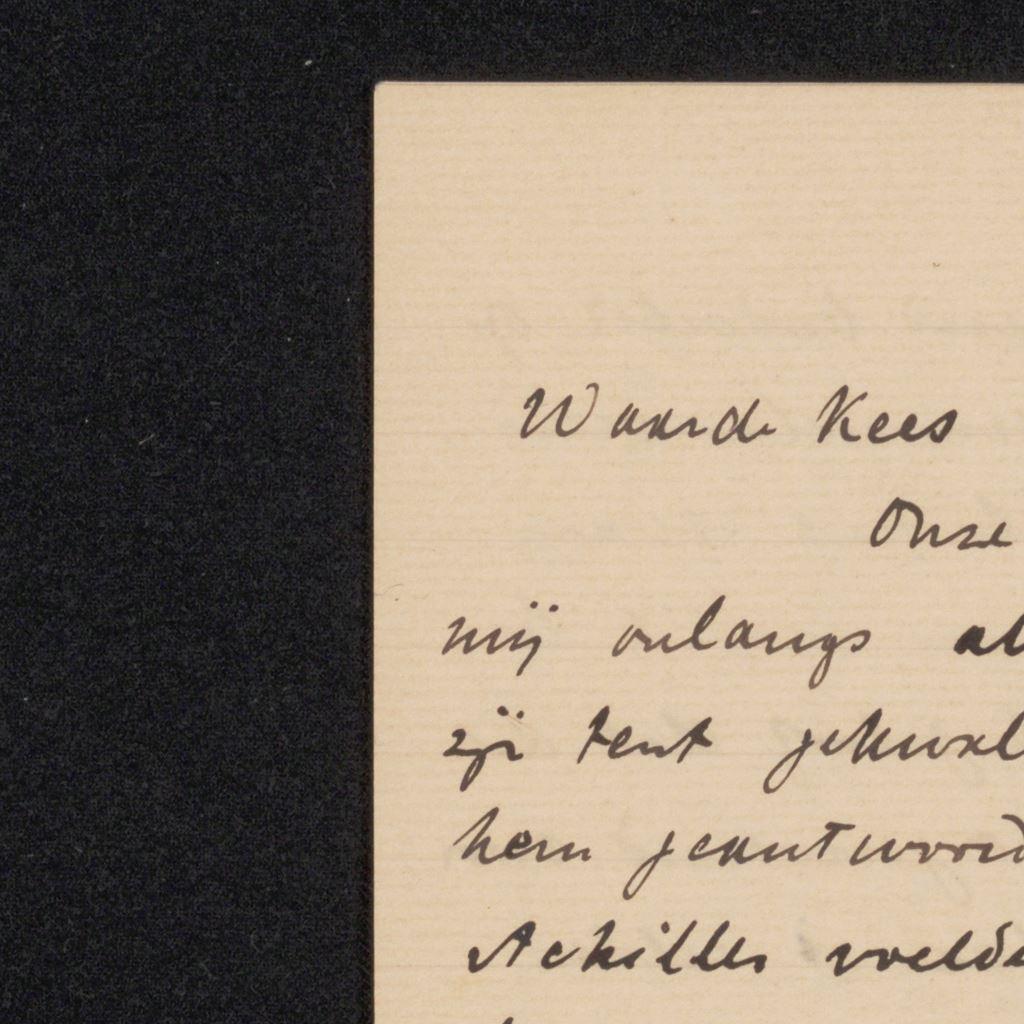 Waarde Kees
Onze
mij onlangs al
zijn tent
hem geantwoord
Achilles voelde